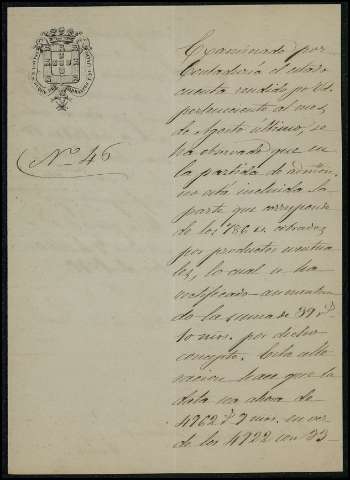 Nº 46
Examinado por
Contaduría el estado
cuenta rendido por Vd.
perteneciente al mes
de Agosto último, se
ha observado que en
la partida de
no está incluida la
parte que corresponde
de los 786 cs. cobrados
por productos eventua
les, lo cual se ha
rectificado aumentan
do la suma de 39 p.
10 mrs. por dicho
concepto. Esta alte
racion hace que la
data sea ahora de
4962 p. 7 mrs. en vez
de los 4922 con 33